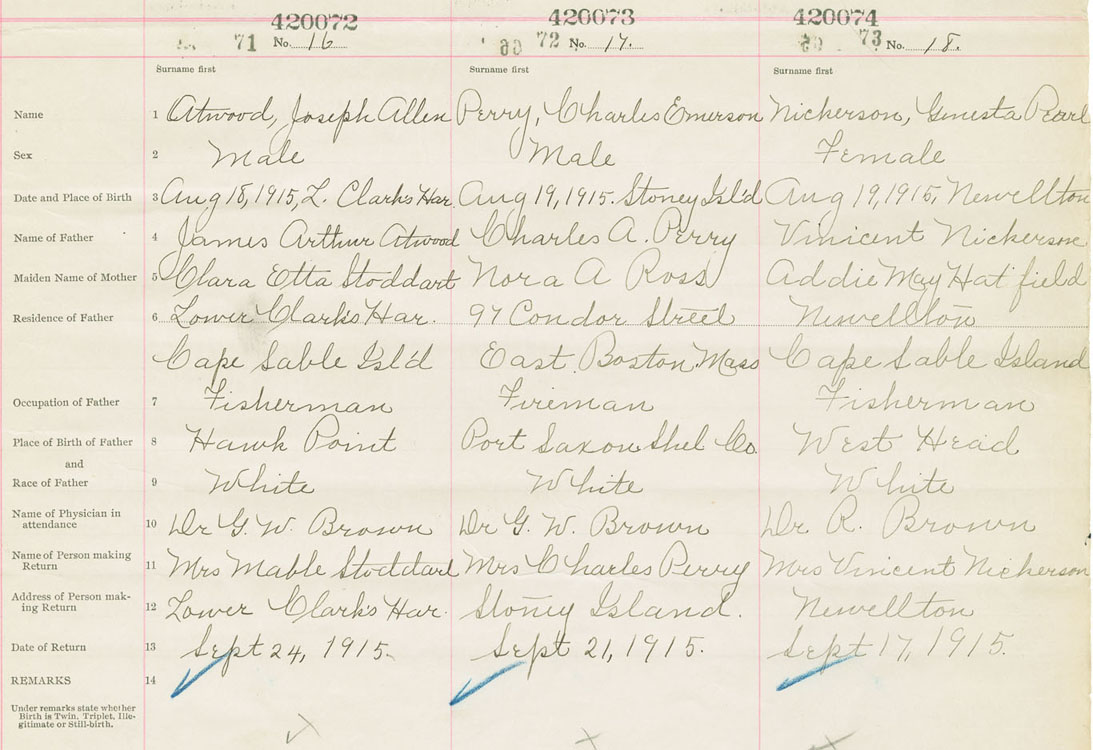 420072 420073 420074
71 No. 16 72 No. 17. 73 No. 18.
Surname first Surname first Surname first
Name 1 Atwood, Joseph Allen Perry, Charles Emerson Nickerson, Genesta Pearl
Sex 2 Male Male Female
Date and Place of Birth 3 Aug 18, 1915, L. Clark's Har. Aug 19, 1915. Stoney Isl'd Aug 19, 1915, Newellton
Name of Father 4 James Arthur Atwood Charles A. Perry Vinicent Nickerson
Maiden Name of Mother 5 Clara Etta Stoddart Nora A Ross Addie May Hatfield
Residence of Father 6 Lower Clark's Har. 97 Condor Street Newellton
Cape Sable Isl'd East Boston Mass Cape Sable Island
Occupation of Father 7 Fisherman Fireman Fisherman
Place of Birth of Father 8 Hawk Point Port Saxon Shel Co. West Head
and
Race of Father 9 White White White
Name of Physician in
attendance 10 Dr G. W. Brown Dr G. W. Brown Dr R. Brown
Name of Person making
Return 11 Mrs Mable Stoddard Mrs Charles Perry Mrs Vincent Nickerson
Address of Person mak-
ing Return 12 Lower Clark's Har. Stoney Island. Newellton
Date of Return 13 Sept 24, 1915. Sept 21, 1915. Sept 17, 1915.
REMARKS 14
Under remarks state whether
Birth is Twin, Triplet, Ille-
gitimate or Still-birth.